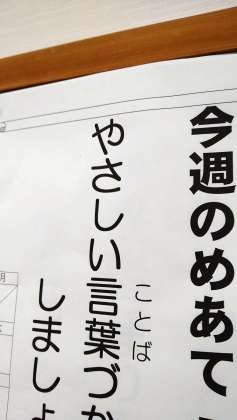 今週のめあて
やさしい言葉づか
ことば
しましょ
月